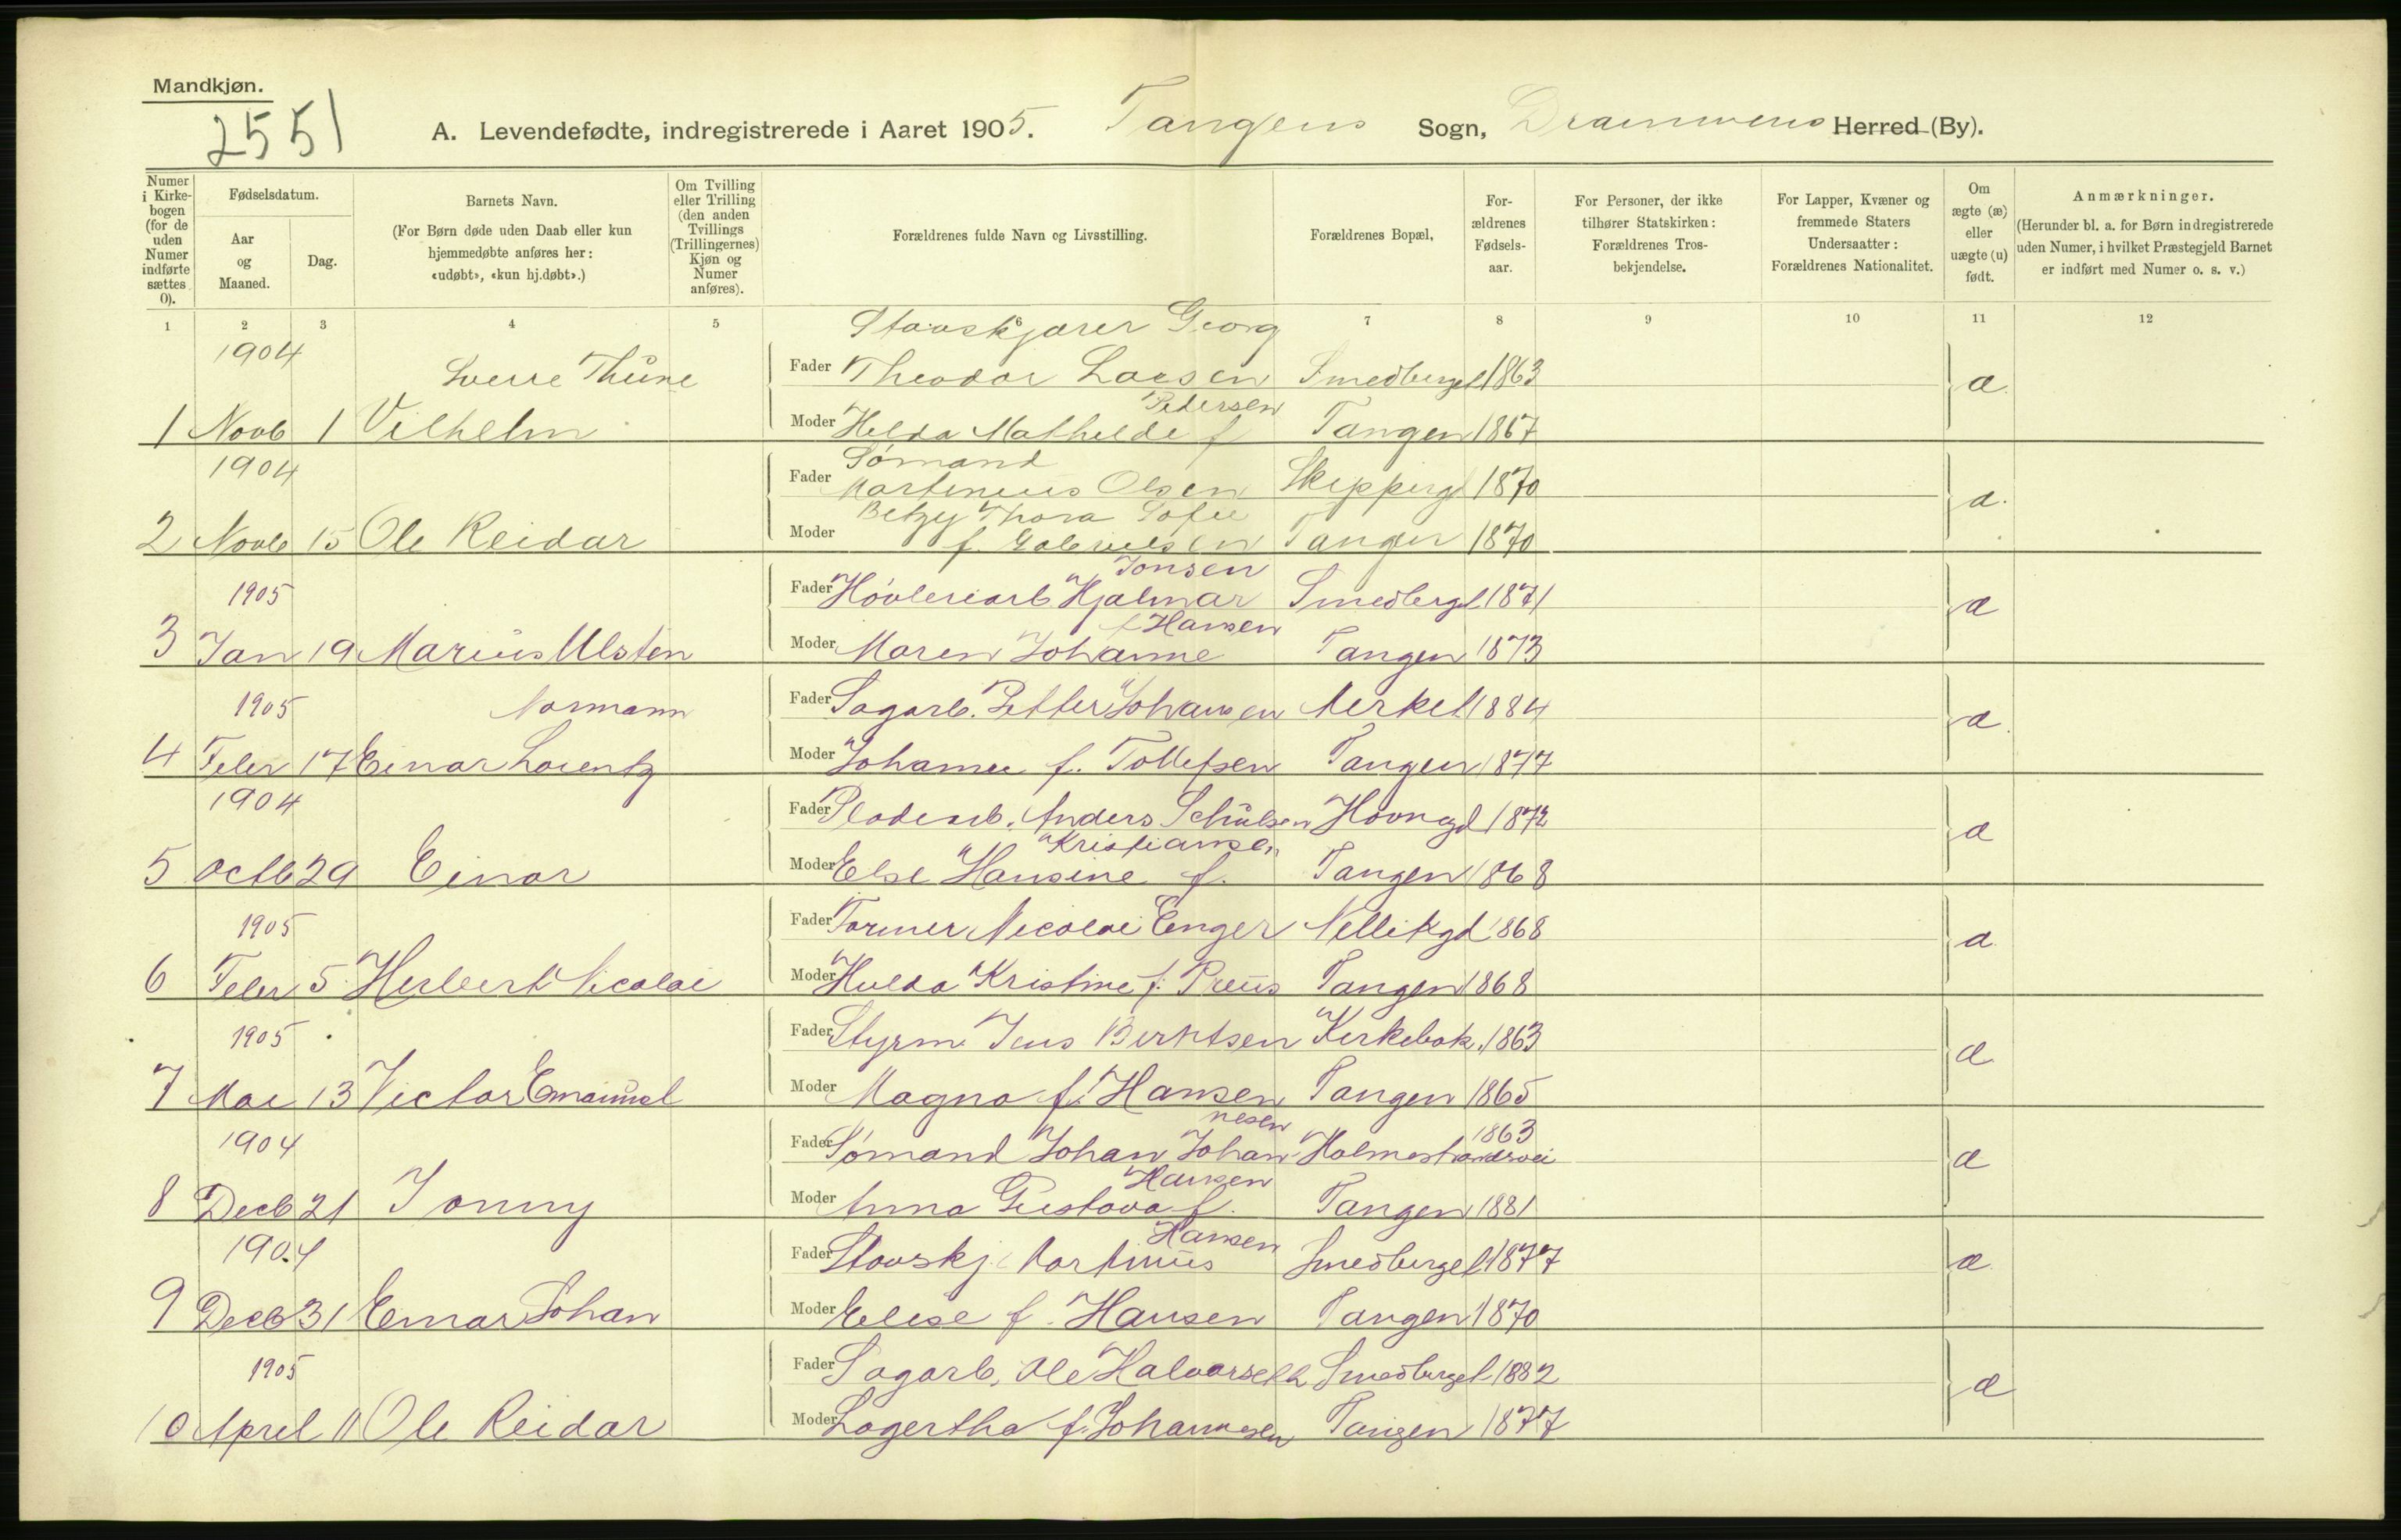 Mandkjøn.
2551
A. Levendefødte, indregistrerede i Aaret 1905. Tangens Sogn, Drammens Herred (By).
Numer i Kirkebogen (for de uden Numer indførte sættes 0).
Fødselsdatum.
Aar og Maaned.
Dag.
Barnets Navn.
(For Børn døde uden Daab eller kun hjemmedøbte anføres her: «udøbt», «kun hj.døbt».)
Om Tvilling eller Trilling (den anden Tvillings (Trillingernes) Kjøn og Numer anføres).
Forældrenes fulde Navn og Livsstilling.
Forældrenes Bopæl,
Forældrenes Fødselsaar.
For Personer, der ikke tilhører Statskirken: Forældrenes Trosbekjendelse.
For Lapper, Kvæner og fremmede Staters Undersaatter: Forældrenes Nationalitet.
Om ægte (æ) eller uægte (u) født.
Anmærkninger.
(Herunder bl. a. for Børn indregistrerede uden Numer, i hvilket Præstegjeld Barnet er indført med Numer o. s. v.)
1 2 3 4 5 6 7 8 9 10 11 12
1904 Sverre Thune Fader Stavskjærer Georg Theodor Larsen Smedbergel 1863 æ
1 Novb 1 Vilhelm Moder Helda Mathilde f Pedersen Tangen 1867
1904 Fader Sømand Martinius Olsen Skipperg 1870 æ
2 Novb 15 Ole Reidar Moder Betzy Thora Sofie f. Gabrielsen Tangen 1870
1905 Fader Høvleriarb Hjalmar Jonsen Smedbergel 1871 æ
3 Jan 19 Marius Ulsten Moder Maren Johanne f Hansen Tangen 1873
1905 Normann Fader Sagarb. Petter Johansen 1884 æ
4 Febr 17 Einar Lorentz Moder Johanne f. Tollefsen Tangen 1877
1904 Fader Anders Schulsen Havnegd 1872 æ
5 Octb 29 Einar Moder Else Hansine f. Kristiansen Tangen 1868
1905 Fader Former Nicolai Enger Nellikgd 1868 æ
6 Febr 5 Herbert Nicolai Moder Hulda Kristine f. Preus Tangen 1868
1905 Fader Styrm Jens Berntsen Kirkebak. 1863 æ
7 Mai 13 Victor Emanuel Moder Magna f. Hansen Tangen 1865
1904 Fader Sømand Johan Johannesen Holmestrandsvei 1863 æ
8 Decb 21 Jonny Moder Anna Gustava f. Hansen Tangen 1881
1904 Fader Stavskj. Martinius Hansen Smedbergel 1877 æ
9 Decb 31 Einar Johan Moder Elise f. Hansen Tangen 1870
1905 Fader Sagarb. Ole Halvorsen Smedbergel 1882 æ
10 April 11 Ole Reidar Moder Lagertha f. Johannesen Tangen 1877